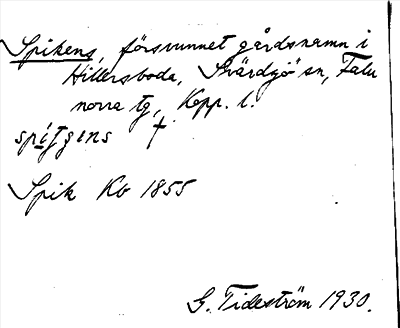 Spikens, försvunnet gårdsnamn i
Hillersboda, Svärdsjö sn, Falu
norra tg, Kopp. l.
spiʃʒɩns †
Spik Kb 1855
G. Tideström 1930.